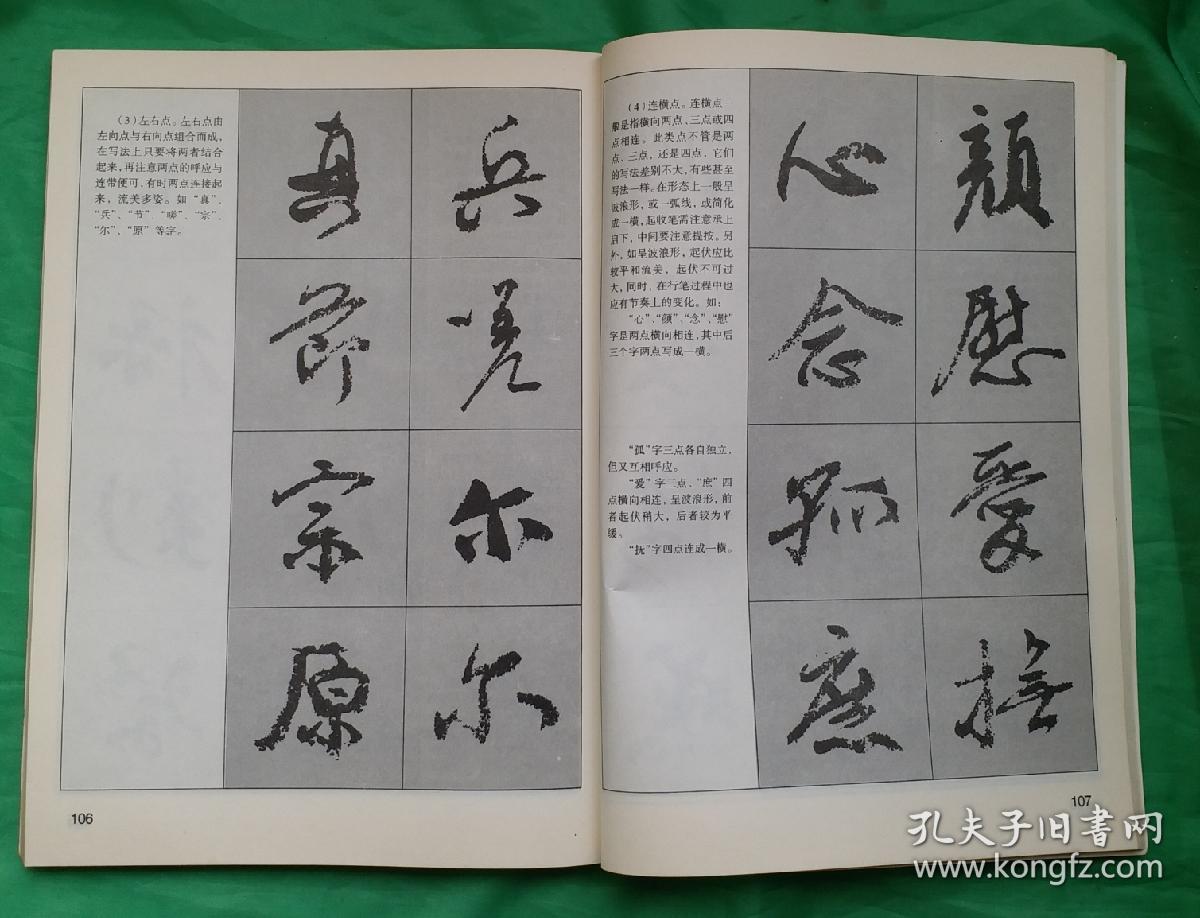 (3)左右点。左右点由
左向点与右向点组合而成,
左写法上只要将两者结合
起来,再注意两点的呼应与
连带便可,有时两点连接起
来,流美多姿。如“真”、
“兵”、“节”“嗟”、“宗”、
“尔”、“原”等字。
真 兵
節 嗟
宗 尔
原 尔
106
(4)连横点。连横点一
般是指横向两点、三点或四
点相连。此类点不管是两
点、三点,还是四点,它们
的写法差别不大,有些甚至
写法一样。在形态上一般呈
波浪形,或一弧线,或简化
成一横,起收笔需注意承上
启下,中间要注意提按。另
外,如呈波浪形,起伏应比
较平和流美,起伏不可过
大,同时,在行笔过程中也
应有节奏上的变化。如:
“心”、“颜”、“念”、“慰”
字是两点横向相连,其中后
三个字两点写成一横。
“孤”字三点各自独立,
但又互相呼应。
“爱”字三点、“庶”四
点横向相连,呈波浪形,前
者起伏稍大,后者较为平
缓。
“抚”字四点连成一横。
心 顏
念 慰
孤 愛
庶 撫
107
孔夫子旧书网
www.kongfz.com